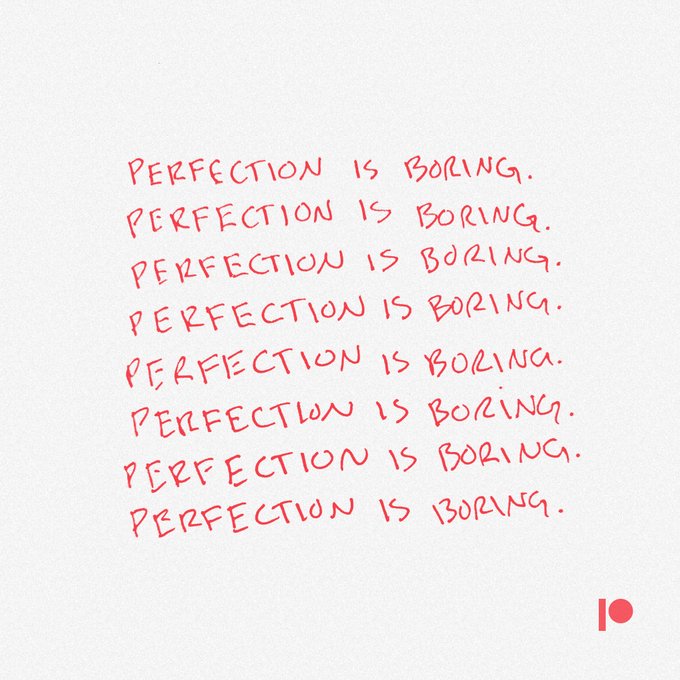 PERFECTION IS BORING.
PERFECTION IS BORING.
PERFECTION IS BORING.
PERFECTION IS BORING.
PERFECTION IS BORING.
PERFECTION IS BORING.
PERFECTION IS BORING.
PERFECTION IS BORING.